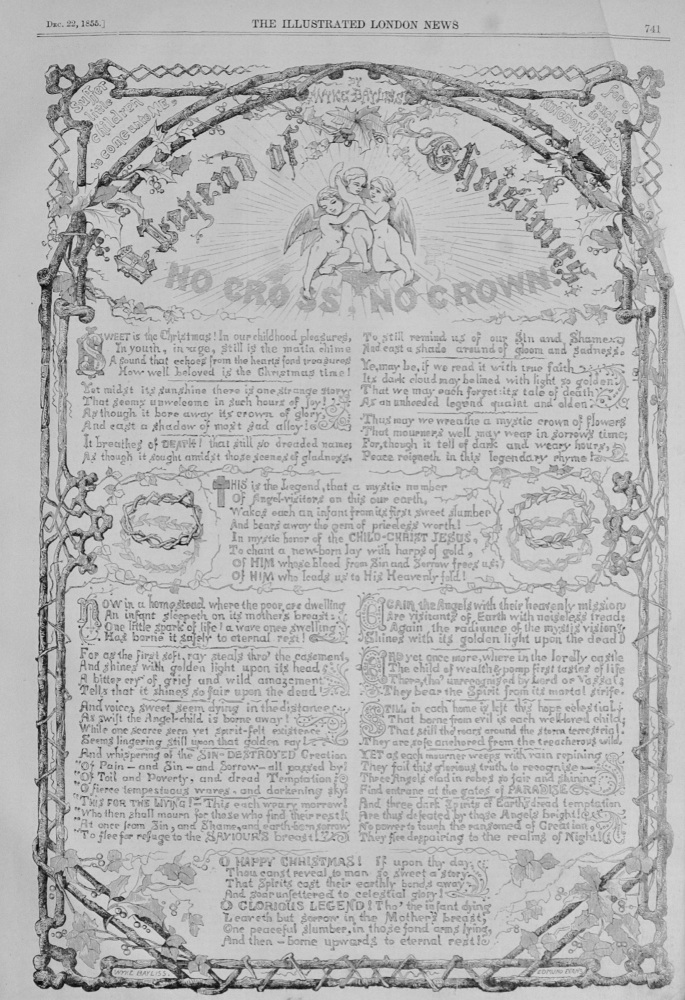 DEC. 22, 1855.]
THE ILLUSTRATED LONDON NEWS
741
Suffer
little
children
to come unto ME,
BY
WYKE BAYLISS.
A Legend of Christmas.
NO CROSS NO CROWN.
SWEET is the Christmas! In our childhood pleasures,
In youth, in age, still is the matin chime
A sound that echoes from the heart's fond treasures
How well beloved is the Christmas time!
Yet midst its sunshine there is one strange story
That seems unwelcome in such hours of joy!
As though it bore away its crown of glory
And cast a shadow of most sad alloy!
It breathes of DEATH! that still so dreaded name;
As though it sought amidst those scenes of gladness,
To still remind us of our Sin and Shame,
And cast a shade around of gloom and sadness.
Ye, may be, if we read it with true faith
Its dark cloud may be lined with light so golden
That we may each forget its tale of death
As an unheeded legend quaint and olden.
Thus may we wreathe a mystic crown of flowers
That mourners well may wear in sorrow's time;
For, though it tell of dark and weary hours,
Peace reigneth in this legendary rhyme
THIS is the Legend, that a mystic number
Of Angel-visitors on this our earth,
Wakes each an infant from its first sweet slumber
And bears away the gem of priceless worth!
In mystic honor of the CHILD-CHRIST JESUS,
To chant a new-born lay with harps of gold,
Of HIM whose Blood from Sin and Sorrow frees us;
Of HIM who leads us to His Heavenly fold!
NOW in a homestead where the poor are dwelling
An infant sleepeth on its mother's breast:
One little spark of life! a wave once swelling
Has borne it safely to eternal rest!
For as the first soft ray steals thro' the casement,
And shines with golden light upon its head
A bitter cry of grief and wild amazement
Tells that it shines so fair upon the dead!
And voices sweet seem dying in the distance
As swift the Angel-child is borne away!
While one scarce seen yet spirit-felt existence
Seems lingering still upon that golden ray!
And whispering of the SIN-DESTROYED Creation
"Of Pain - and Sin - and Sorrow - all passed by!
"Of Toil and Poverty, and dread Temptation
"O fierce tempestuous waves - and darkening sky!
"THIS FOR THE LIVING! - This each weary morrow!
"Who then shall mourn for those who find their rest
"At once from Sin, and Shame, and earth-born sorrow
"To flee for refuge to the SAVIOUR'S breast!
AGAIN the Angels with their heavenly mission
Are visitants of Earth with noiseless tread:
Again, the radiance of the mystic vision
Shines with its golden light upon the dead!
AND yet once more, where in the lordly castle
The child of wealth & pomp first tastes of life
There, tho' unrecognised by Lord or Vassal;
They bear the Spirit from its mortal strife.
STILL in each home is left this hope celestial;
That borne from evil is each well-loved child;
That still the roars around the storm terrestrial
They are safe anchored from the treacherous wild.
YET as each mourner weeps with vain repining
They fail this glorious truth to recognise
Three Angels clad in robes so fair and shining
Find entrance at the gates of PARADISE
And three dark Spirits of Earth's dread temptation
Are thus defeated by those Angels bright
No power to touch the ransomed of Creation,
They flee despairing to the realms of Night!
O HAPPY CHRISTMAS! If upon thy day
Thou canst reveal to man so sweet a story
That Spirits cast their earthly bonds away
And soar unfettered to celestial glory!
O GLORIOUS LEGEND! Tho' the infant dying
Leaveth but sorrow in the Mother's breast,
One peaceful slumber, in those fond arms lying,
And then - borne upwards to eternal rest!
WYKE BAYLISS.
EDMUND EVANS